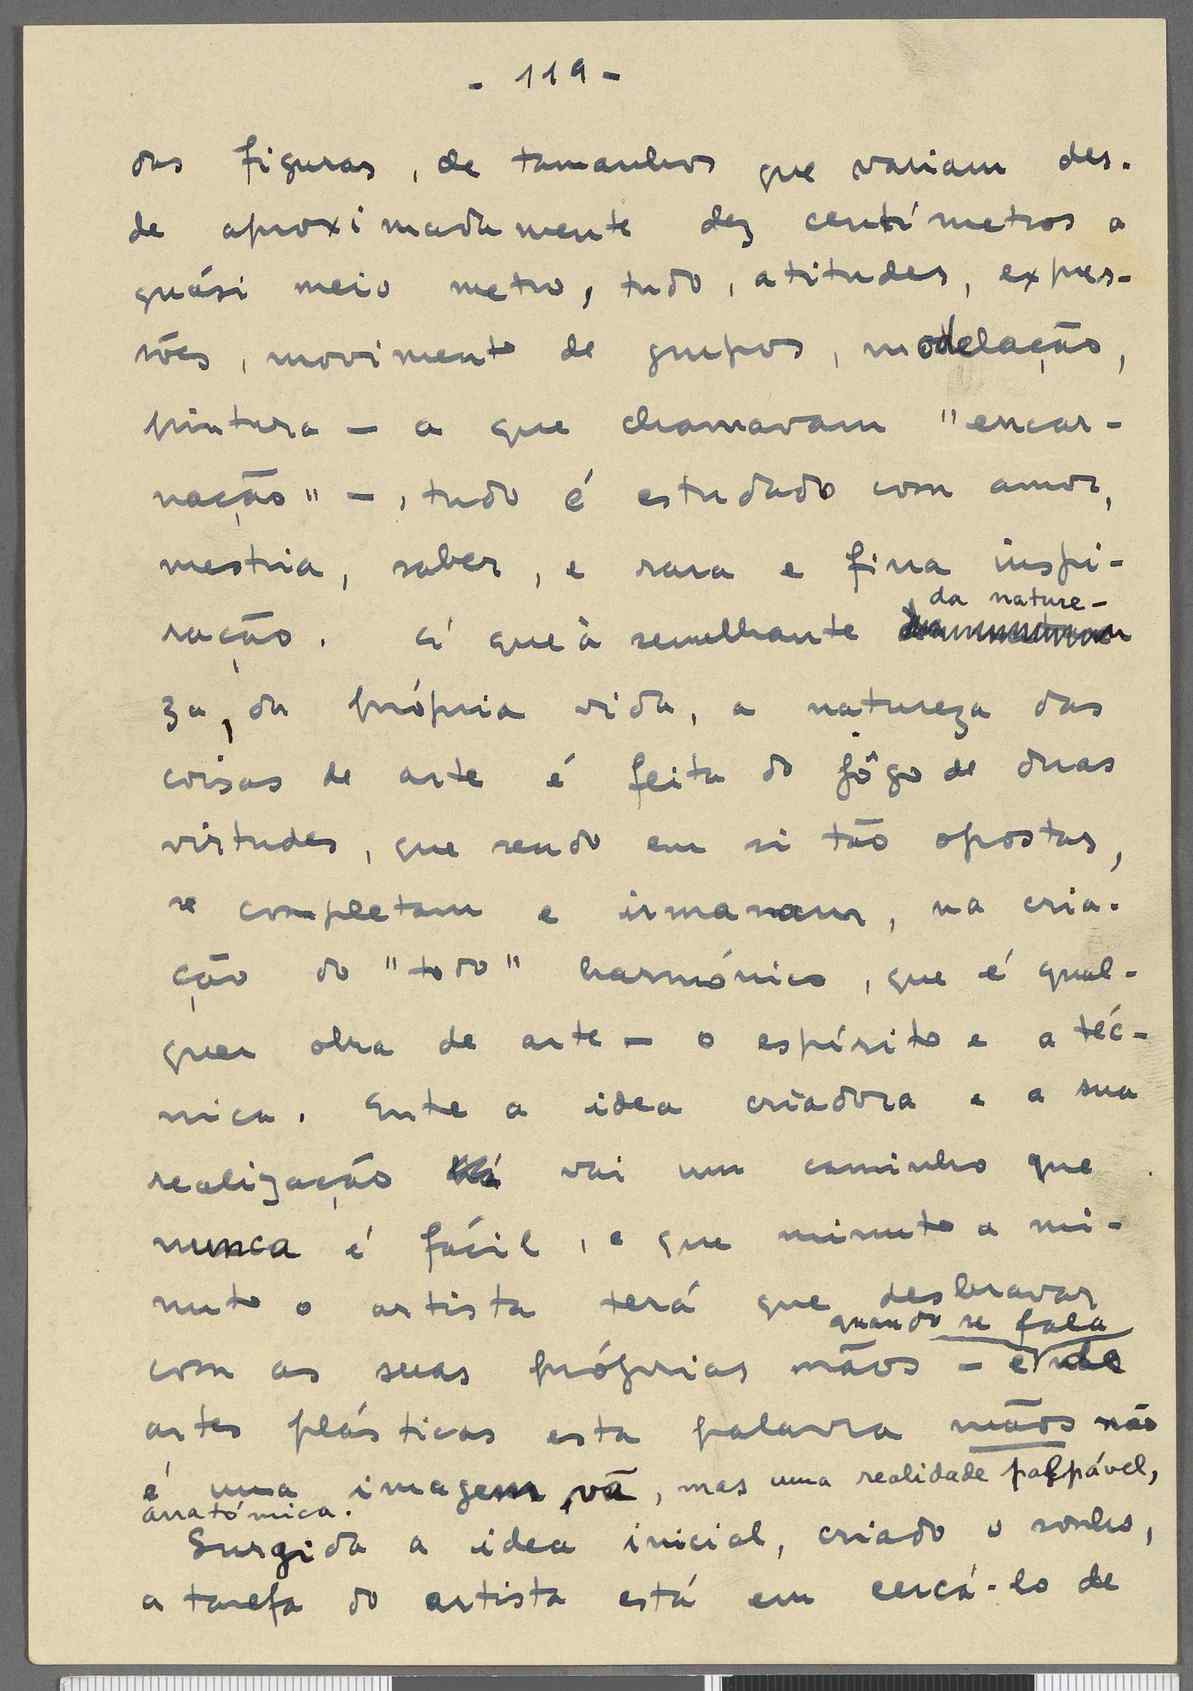 - 119 -
das figuras, de tamanhos que variam des-
de aproximadamente dez centímetros a
quási meio metro, tudo, atitudes, expres-
sões, movimento de grupos, modelação,
pintura — a que chamavam "encar-
nação" —, tudo é estudado com amor,
mestria, saber, e rara e fina inspi-
da nature-
ração. É que à semelhante
za, da própria vida, a natureza das
coisas de arte é feita do jôgo de duas
virtudes, que sendo em si tão opostas,
se completam e irmanam, na cria-
ção do "todo" harmónico, que é qual-
quer obra de arte — o espírito e a téc-
nica. Entre a idea criadora e a sua
realização vai um caminho que
nunca é fácil, e que minuto a mi-
nuto o artista terá que desbravar
quando se fala
com as suas próprias mãos — e de
artes plásticas esta palavra mãos não
é uma imagem vã, mas uma realidade palpável,
anatómica.
Surgida a idea inicial, criado o sonho,
a tarefa do artista está em cercá-lo de